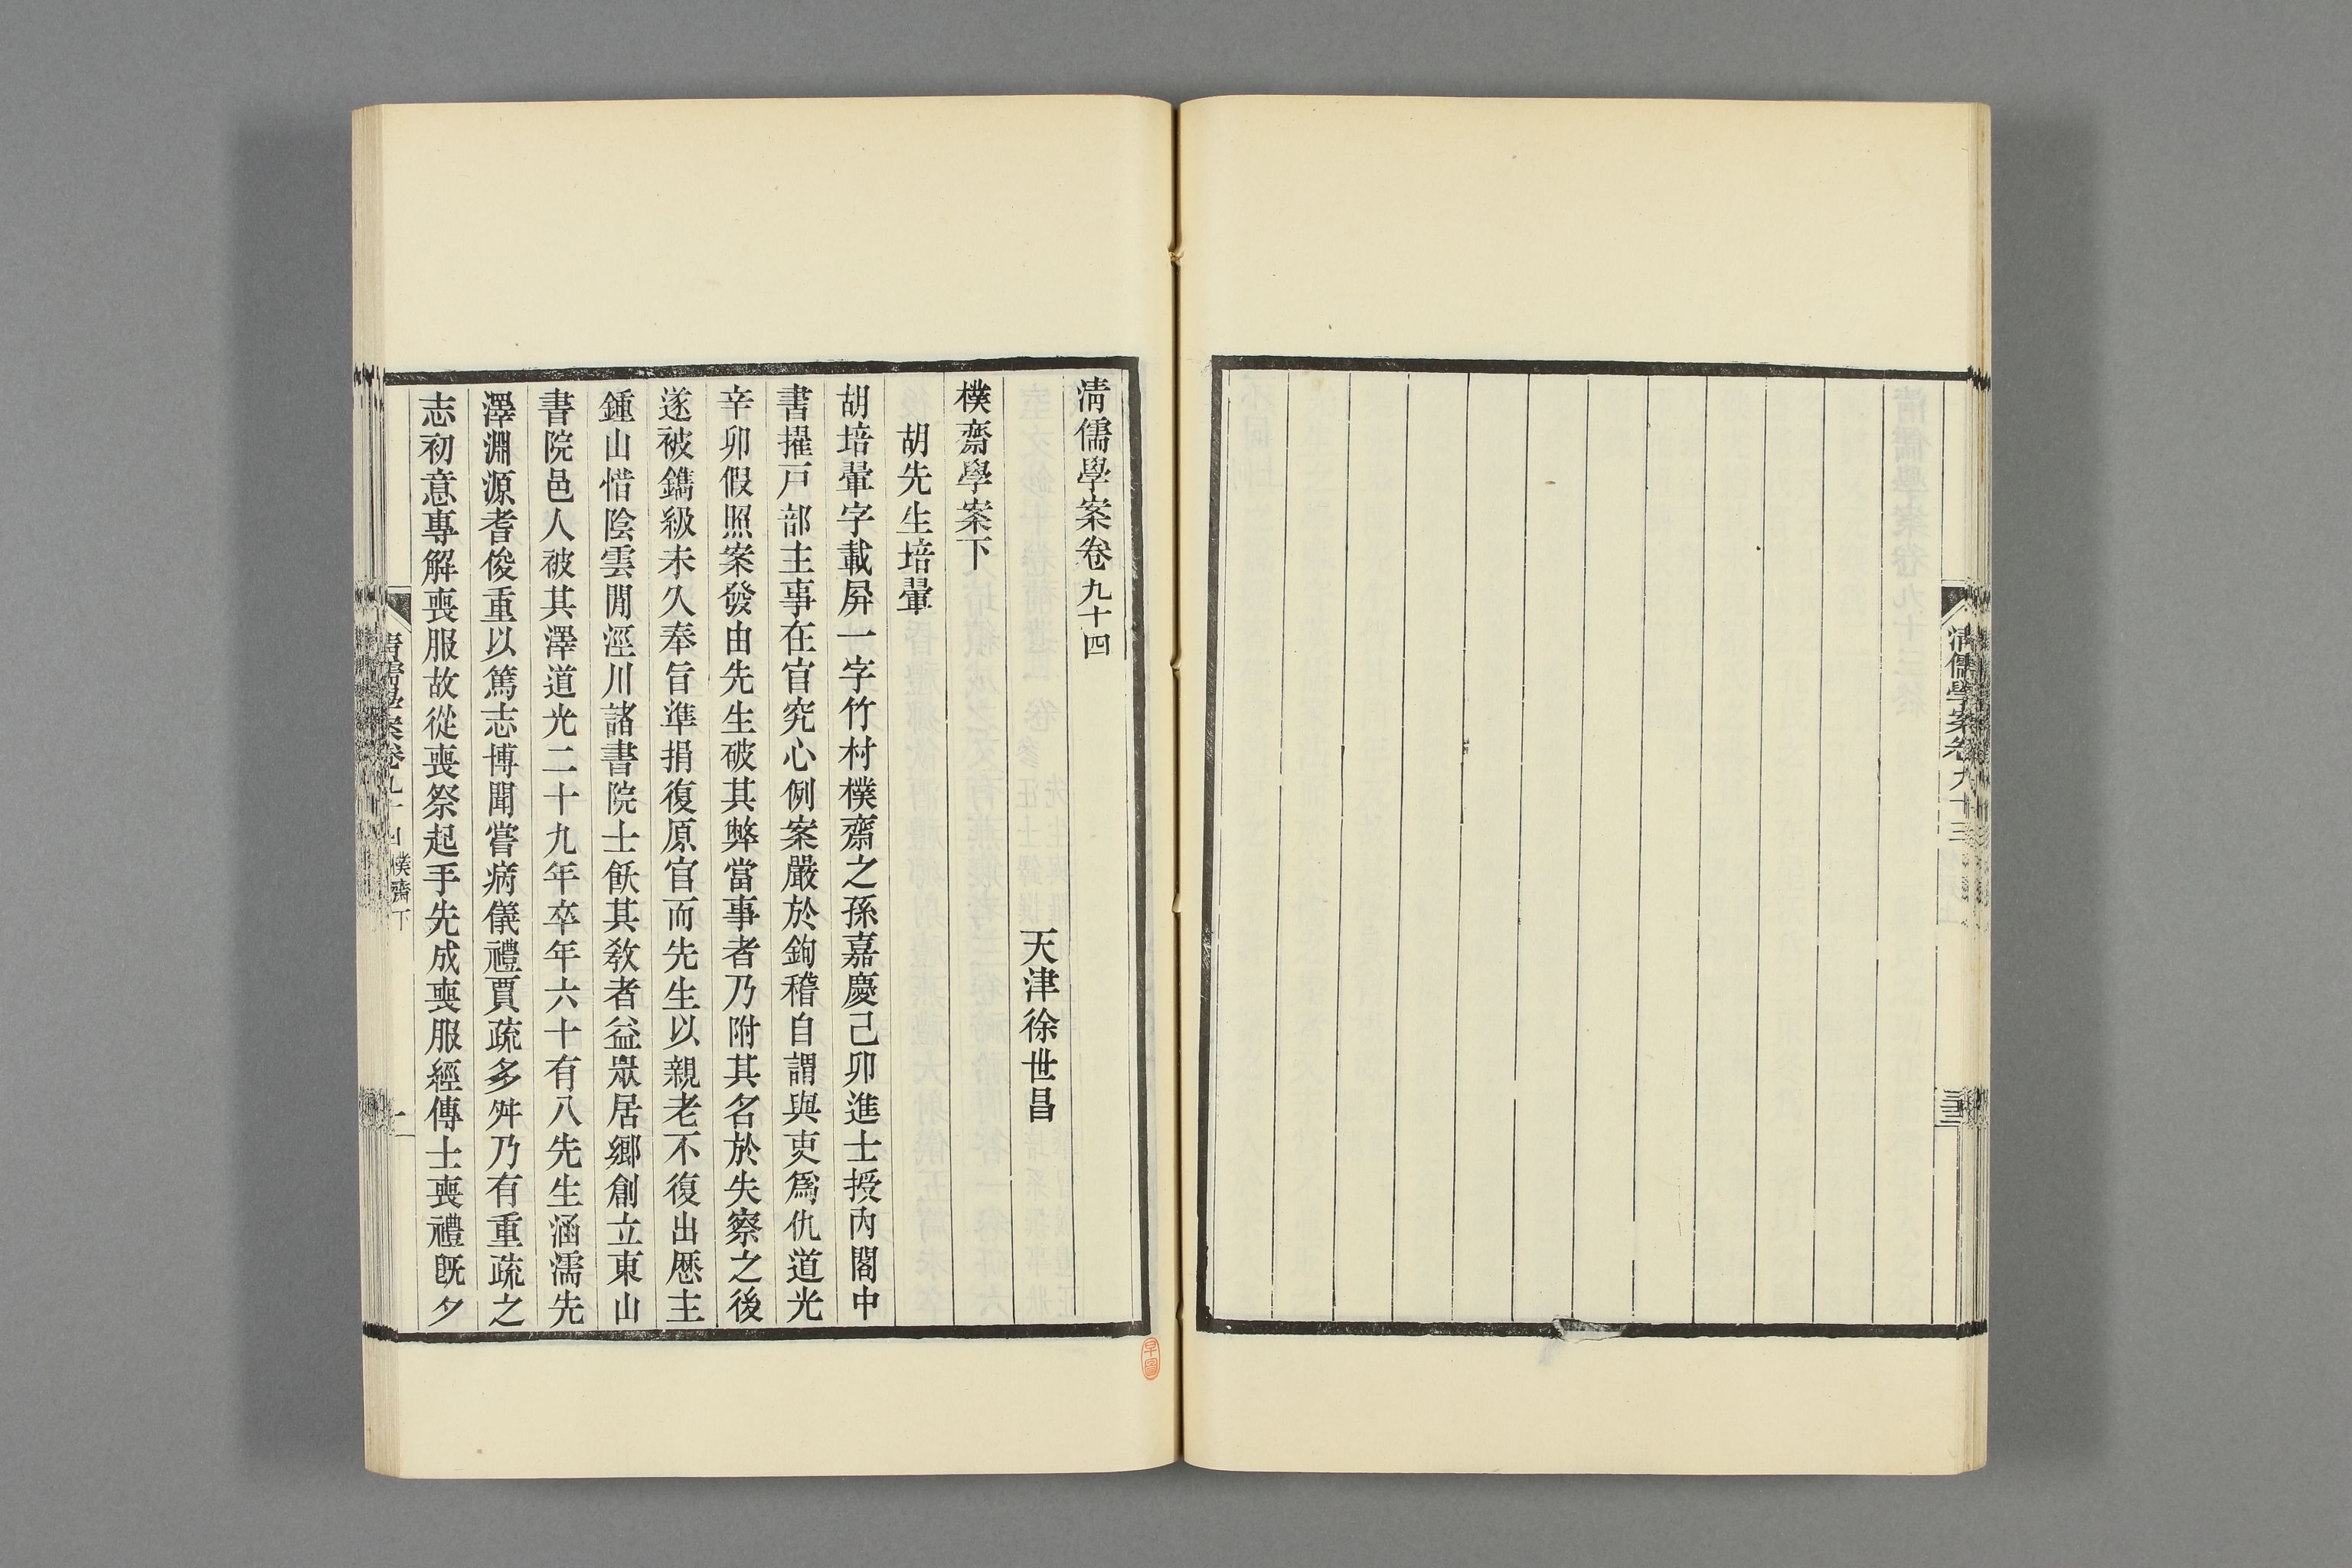 清儒學案卷九十三
三十三
清儒學案卷九十四
天津徐世昌
樸齋學案下
胡先生培翬
胡培翬字載屏一字竹村樸齋之孫嘉慶己卯進士授內閣中
書擢戶部主事在官究心例案嚴於鉤稽自謂與吏爲仇道光
辛卯假照案發由先生破其弊當事者乃附其名於失察之後
遂被鐫級未久奉旨準捐復原官而先生以親老不復出厯主
鍾山惜陰雲閒涇川諸書院士飫其敎者益眾居鄉創立東山
書院邑人被其澤道光二十九年卒年六十有八先生涵濡先
澤淵源耆俊重以篤志博聞嘗病儀禮賈疏多舛乃有重疏之
志初意專解喪服故從喪祭起手先成喪服經傳士喪禮旣夕
清儒學案卷九十四 樸齋下
一